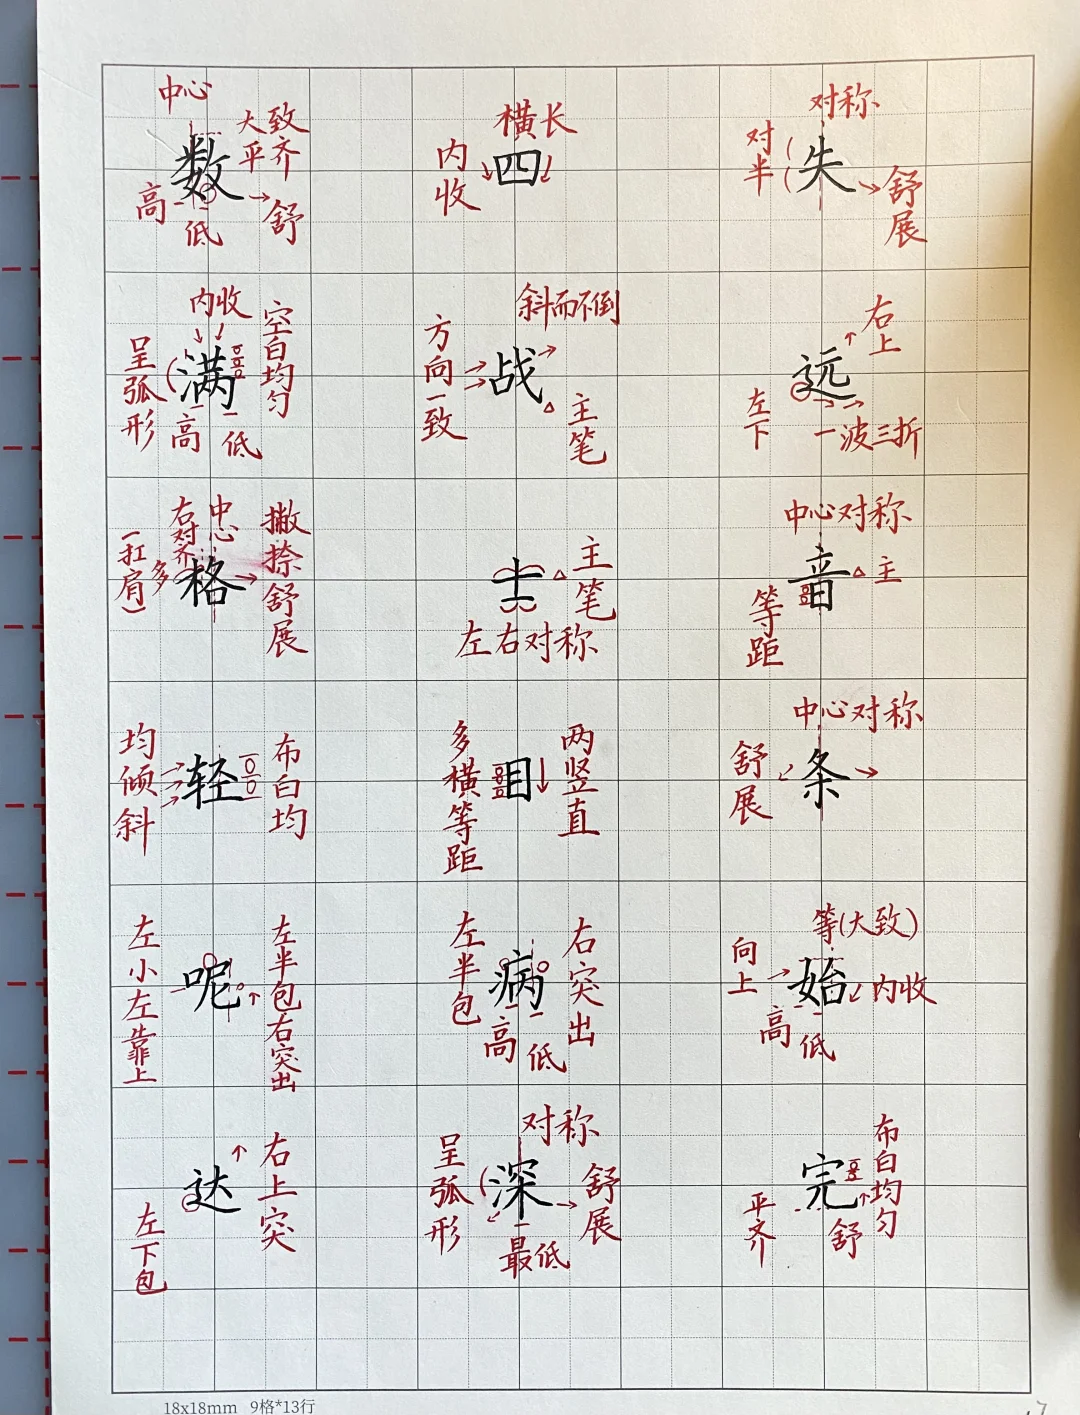 中心
大致
平齐
数
高
低
舒
横长
内收
四
对称
对半
失
舒展
内收
空白均匀
呈弧形
满
高
低
斜而不倒
方向一致
战
主笔
右上
远
左下
一波三折
右对齐
中心
撇捺舒展
(扛肩)
多
格
主笔
士
左右对称
中心对称
音
主
等距
均倾斜
轻
布白均
多横等距
目
两竖直
中心对称
舒展
条
左小左靠上
呢
左半包右突出
左半包
病
右突出
高
低
等(大致)
向上
始
内收
高
低
右上突
达
左下包
对称
呈弧形
深
舒展
最低
布白均匀
完
平齐
舒
18x18mm 9格*13行